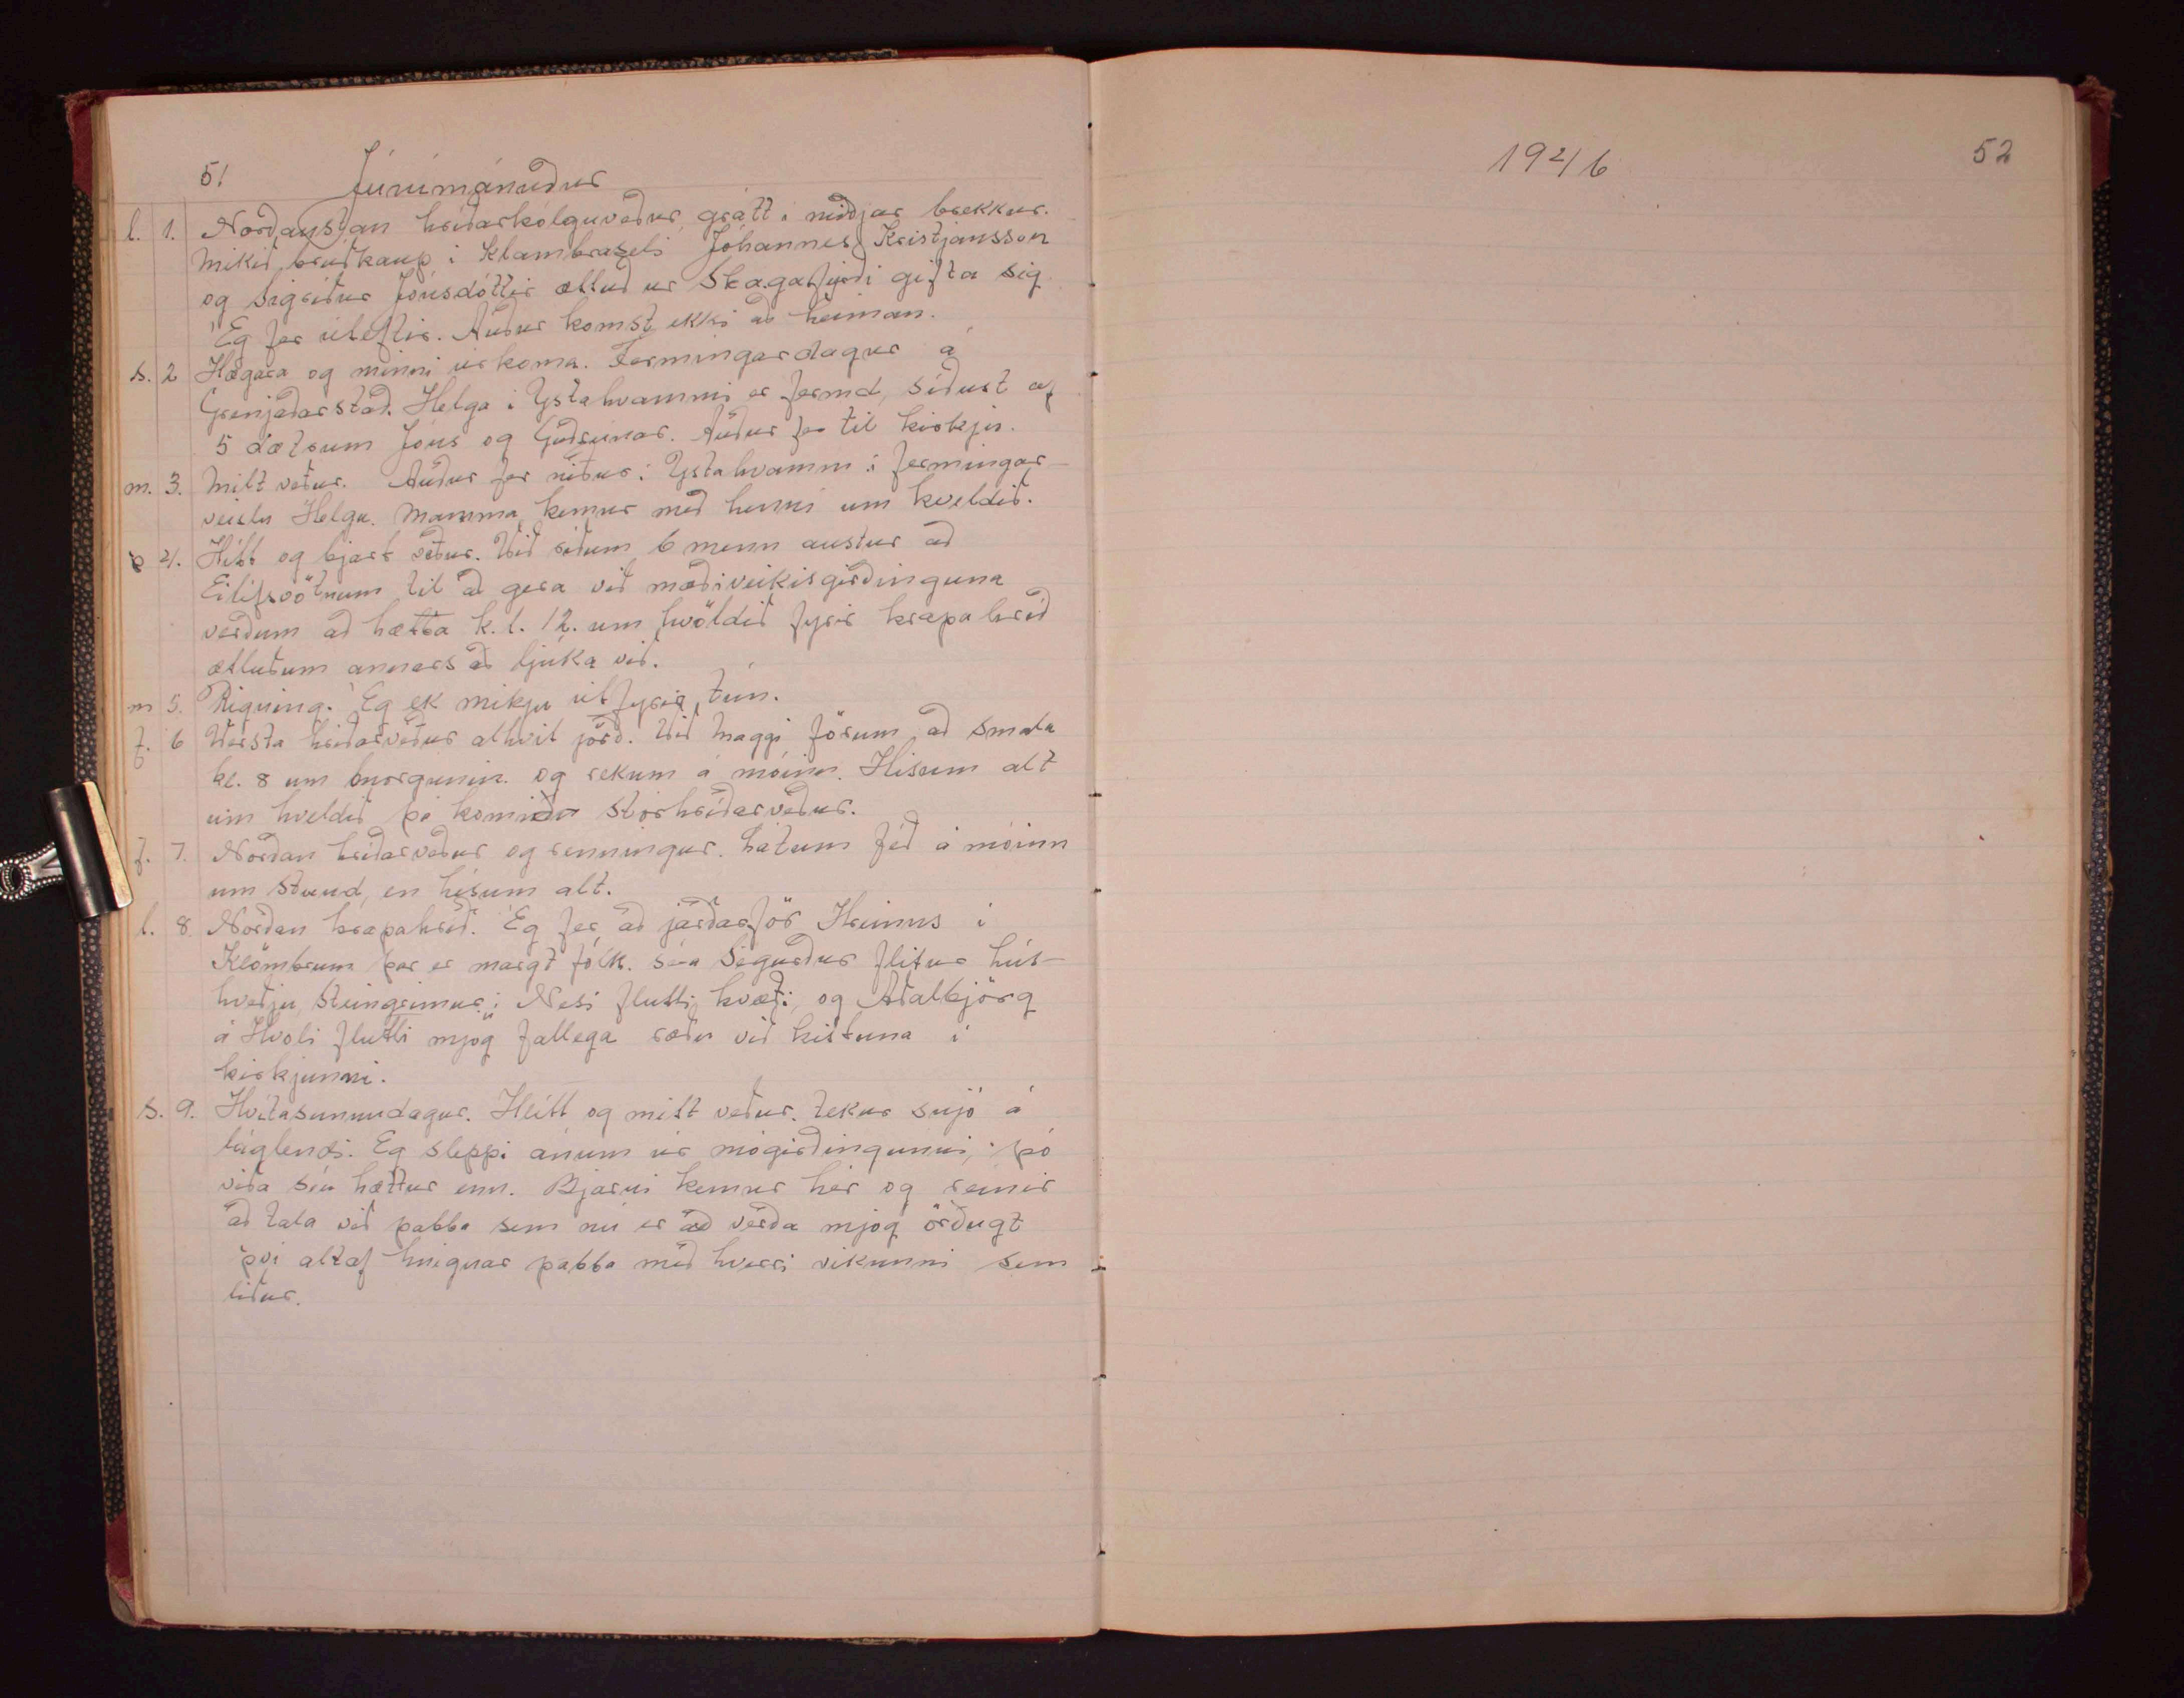 51 Júnímánuður
l. 1. Norðaustan hríðarkólguveður, grátt í miðjar brekkur.
Mikið brúðkaup í Klambraseli Jóhannes Kristjánsson
og Sigríður Jónsdóttir ættuð úr Skagafirði gifta sig
Ég fer úteftir. Auður komst ekki að heiman.
s. 2 Hægara og minni úrkoma. Fermingardagur á
Grenjaðarstað. Helga í Ystahvammi er fermd, síðust af
5 dætrum Jóns og Guðrúnar. Auður fer til kirkju.
m. 3. Milt veður. Auður fer niður í Ystahvamm í fermingar-
veislu Helgu. Mamma kemur með henni um kveldið.
þ 4. Hlítt og bjart veður. Við riðum 6 menn austur að
Eilífsvötnum til að gera við mæðiveikisgirðinguna
verðum að hætta k.l. 12. um kvöldið fyrir krapahríð
ætluðum annars að ljúka við.
m 5. Rigning. Ég ek mikju út fyrir tún.
f. 6 Versta hríðarveður alhvít jörð. Við Maggi förum að smala
kl. 8 um morgunin. og rekum á móinn. Hísum alt
um kveldið þá komið Stórhríðarveður.
f. 7. Norðan hríðarveður og renningur. Látum féð á móinn
um stund, en hísum alt.
l. 8 Norðan krapahríð. Ég fer að jarðarför Hreinns í
Klömbrum þar er margt fólk. Séra Sigurður flitur hús-
kveðju, Steingrímur í Nesi flutti kvæði, og Aðalbjörg
á Hvoli flutti mjög fallega ræðu við kistuna í
kirkjunni.
s. 9. Hvítasunnudagur. Hlítt og milt veður. tekur snjó á
láglendi. Ég sleppi ánum úr mógirðingunni, þó
víða séu hættur enn. Bjarni kemur hér og reinir
að tala við pabba sem nú er að verða mjög örðugt
því altaf hnignar pabba með hverri vikunni sem
líður.
1946 52